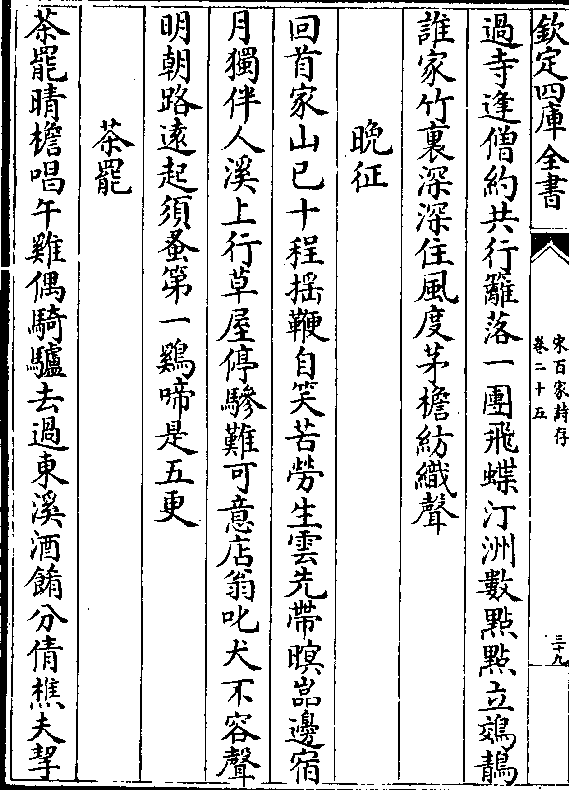 欽定四庫全書
宋百家詩存
卷二十五
三十九
過寺逢僧約共行籬落一團飛蝶汀洲數點點立鵁鶄
誰家竹裏深深住風度茅檐紡織聲
晩征
回首家山已十程揺鞭自笑苦勞生雲先帶暝嵒邊宿
月獨伴人溪上行草屋停驂難可意店翁叱犬不容聲
明朝路遠起須蚤第一鷄啼是五更
茶罷
茶罷晴檐唱午雞偶騎驢去過東溪酒餚分倩樵夫挈